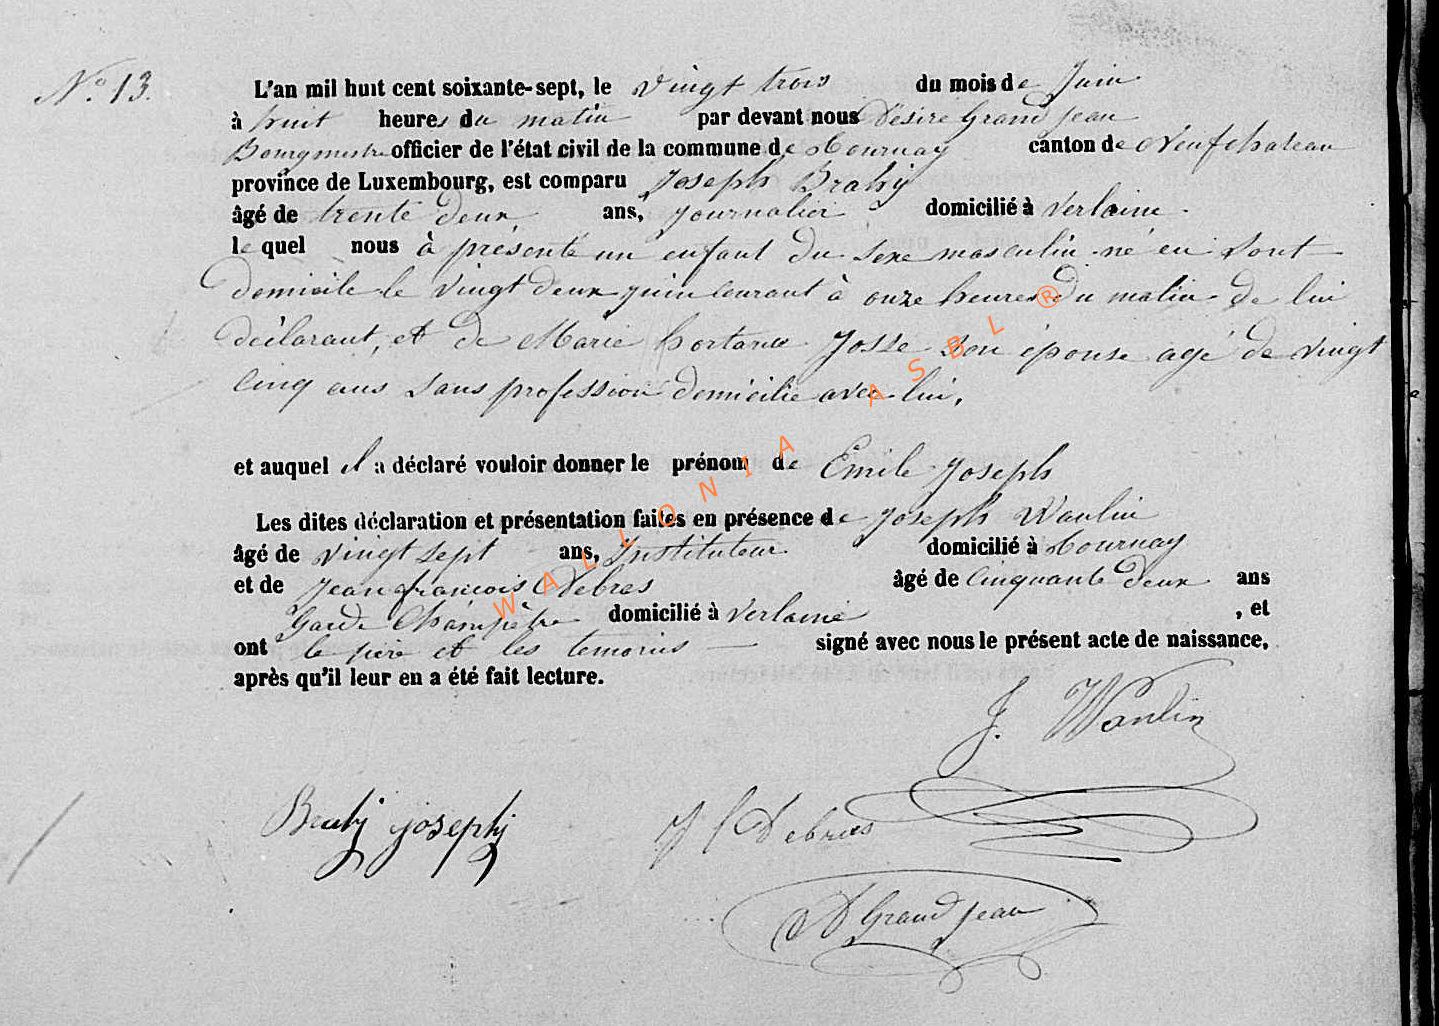 N.° 13.
L'an mil huit cent soixante-sept, le vingt trois du mois de Juin
à huit heures du matin par devant nous Désiré Grand Jean
Bourgmestre officier de l'état civil de la commune de Tournay canton de Neufchateau
province de Luxembourg, est comparu Joseph Brahy
âgé de trente deux ans, Journalier domicilié à Verlaine.
le quel nous à présenté un enfant du sexe masculin né en Sont
domicile le vingt deux juin courant à onze heures du matin de lui
déclarant, et de Marie hortance Josse son épouse agé de vingt
cinq ans sans profession domicilie avec lui.
et auquel il a déclaré vouloir donner le prénom de Emile Joseph
Les dites déclaration et présentation faites en présence de Joseph Wanlin
âgé de vingt sept ans, Instituteur domicilié à Tournay
et de Jean françois Debras âgé de Cinquante deux ans
Garde Champêtre domicilié à Verlaine , et
ont le père et les temoins signé avec nous le présent acte de naissance,
après qu'il leur en a été fait lecture.
J. Wanlin
Brahy joseph
J f Debras
D Grand Jean
WALLONIA ASBL ®